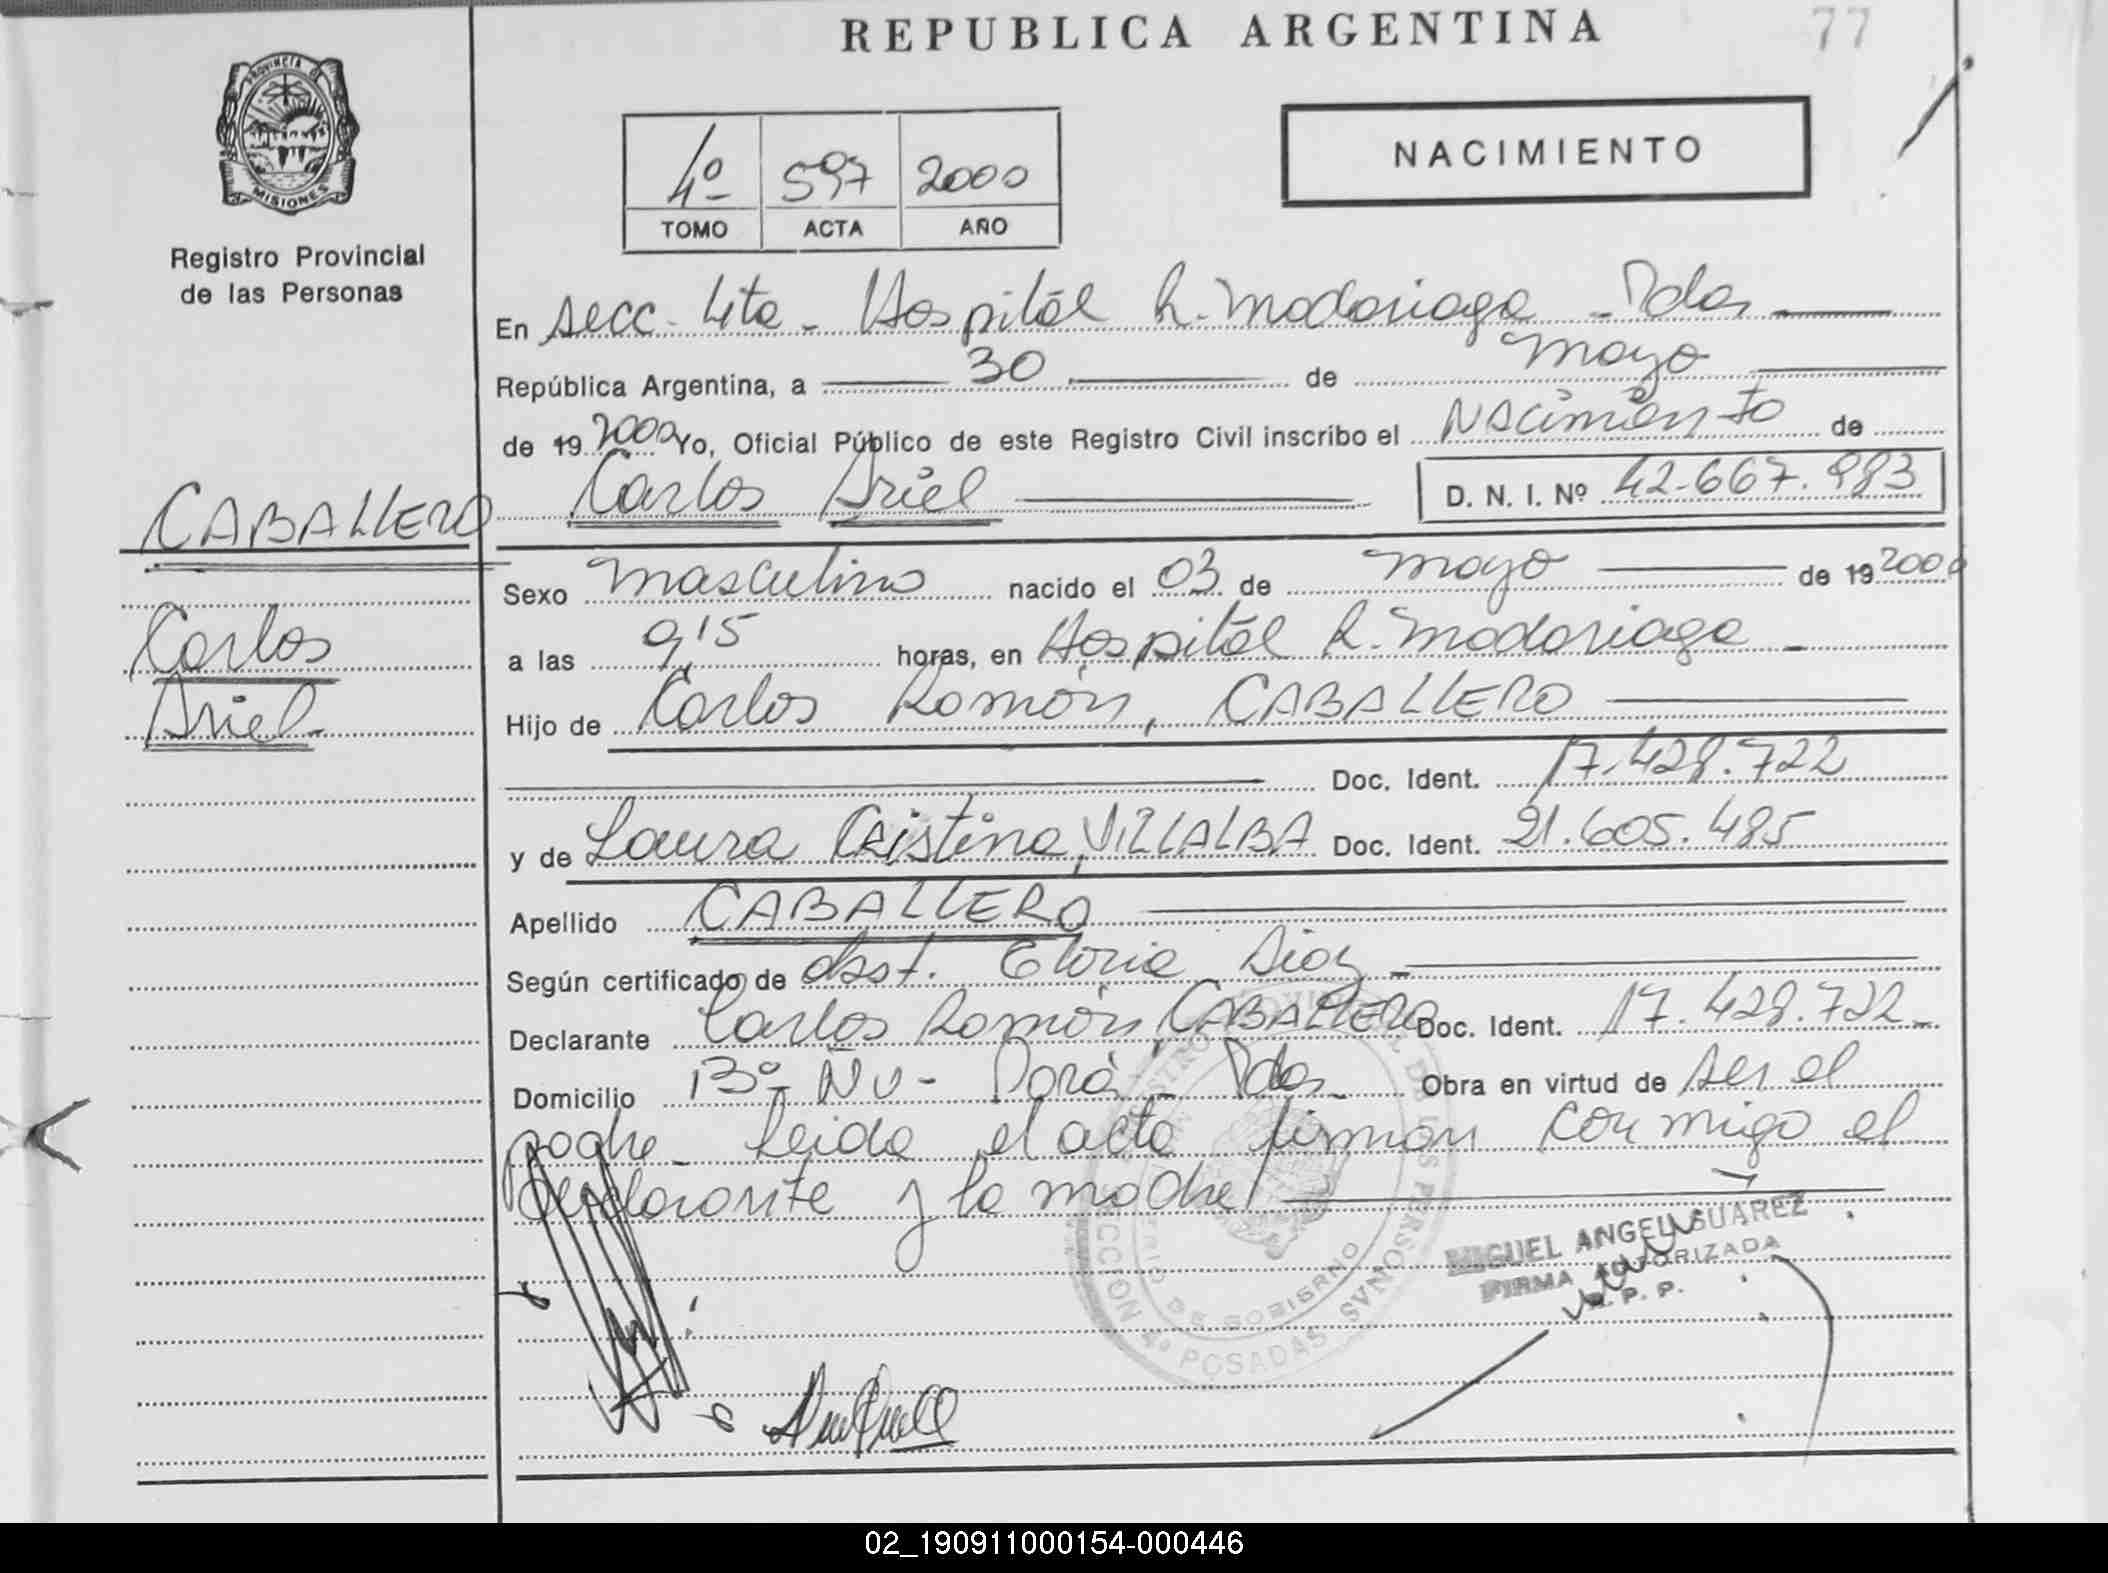 REPUBLICA ARGENTINA
77
PROVINCIA DE MISIONES
Registro Provincial
de las Personas
NACIMIENTO
4º 597 2000
TOMO ACTA AÑO
En Secc. 4ta - Hospital R. Madariaga - Pdas
República Argentina, a 30 de mayo
de 19 2000 Yo, Oficial Público de este Registro Civil inscribo el Nacimiento de
Carlos Ariel D. N. I. Nº 42.667.983
CABALLERO
Carlos
Ariel
Sexo masculino nacido el 03 de mayo de 19 2000
a las 9,15 horas, en Hospital R. Madariaga -
Hijo de Carlos Román, CABALLERO
Doc. Ident. 17.428.722
y de Laura Cristina, VILLALBA Doc. Ident. 21.605.485
Apellido CABALLERO
Según certificado de obst. Gloria Diaz
Declarante Carlos Román, CABALLERO Doc. Ident. 17.428.722
Domicilio Bº Ñu - Porá - Pdas Obra en virtud de ser el
padre - Leida el acta firman conmigo el
declarante y la madre
MIGUEL ANGEL SUAREZ
FIRMA AUTORIZADA
R. P. P.
MINISTERIO DE GOBIERNO
SECCION 4º POSADAS
02_190911000154-000446